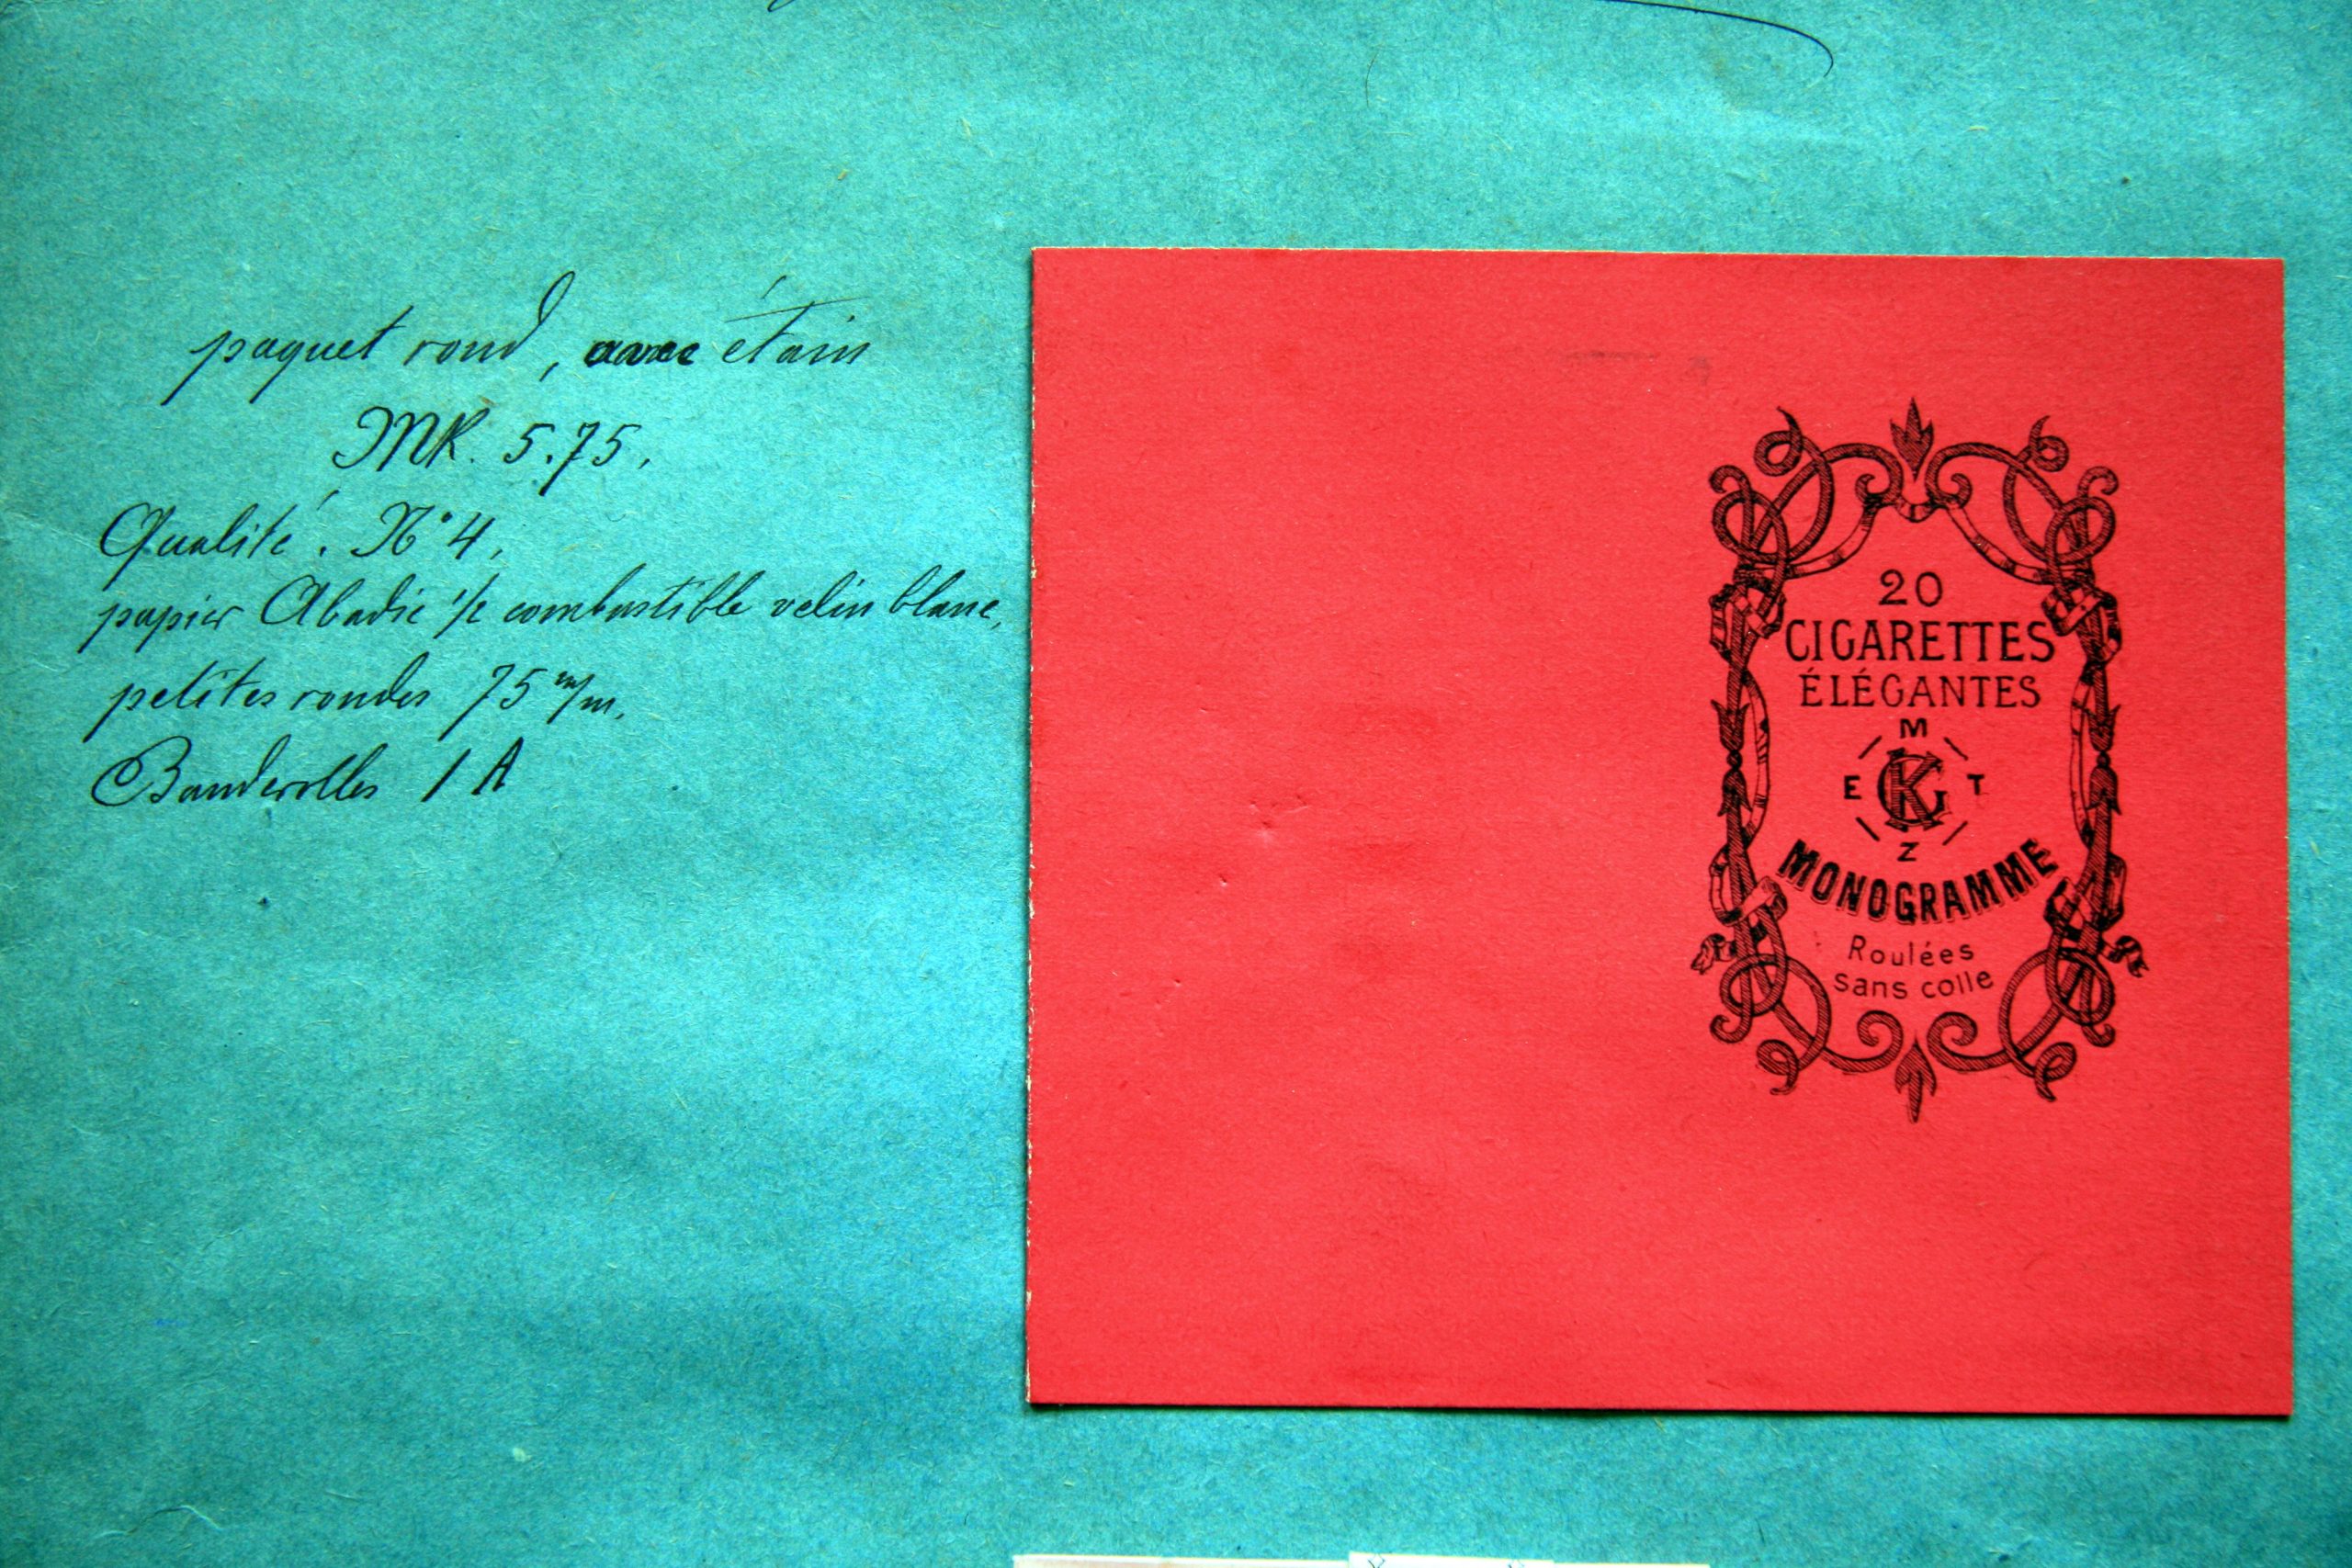 paquet rond, avec étain
MK. 5.75.
Qualité. No 4.
papier Abadie 1/2 combustible velin blanc.
petites rondes 75 m/m.
Banderolles 1 A
20
CIGARETTES
ÉLÉGANTES
M
E KG T
Z
MONOGRAMME
Roulées
sans colle